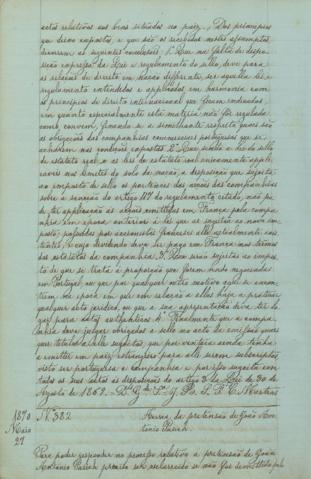 actos relativos aos bens situados no paiz. Dos principios
que deixo expostos, e que são os recebidos n'este assumpto,
decorrem as seguintes conclusões: 1ª Que na falta de dispo-
sição expressa da Lei e regulamento do sello, deve para
os effeitos de direito em sello aquella lei e
regulamento entendidos e applicados em harmonia com
os principios de direito internacional que ficam indicados
em quanto especialmente esta materia não for regulada
como convem, fixando-se a similhante respeito quaes são
as obrigações das companhias commerciaes portuguezas que se
acharem nas condições expostas. 2ª Que sendo a lei do sello
de estatuto real, e as leis do estatuto real unicamente appli-
caveis nos limites do solo da nação, a disposição que sujeita
ao imposto do sello os portadores das acções das companhias
sobre a sancção do artigo 117 do regulamento citado, não po-
de ter applicação ás acções emittidas em França pela compa-
nhia em epoca anterior á lei que as sujeita ao novo im-
posto, possuidas por accionistas francezes alli actualmente exis-
tentes, e cujo dividendo deva ser pago em França nos termos
dos estatutos da companhia. 3ª Que serão sujeitas ao impos-
to de que se trata á proporção que forem sendo negociadas
em Portugal, ou que por qualquer outro motivo aqui se encon-
trem na epoca em que com relação a ellas haja a praticar
qualquer acto juridico em que a sua apresentação deva ter lo-
gar para estar authentico. 4ª Finalmente que a compa-
nhia deve julgar obrigadas a sello no acto da emissão quaes-
quer titulos a elle sujeitos, que por ventura ainda tenha
a emittir em paiz estrangeiro para alli serem subscriptos,
visto ser portugueza a companhia e por isso sujeita em
todos os seus actos ás disposições do artigo 3º da Lei de 30 de
Agosto de 1869.
1870 Nº 382 Acerca da pretensão de João An-
Maio tonio
27
Para poder responder no processo relativo á pretensão de João
Antonio preciso ser esclarecido se